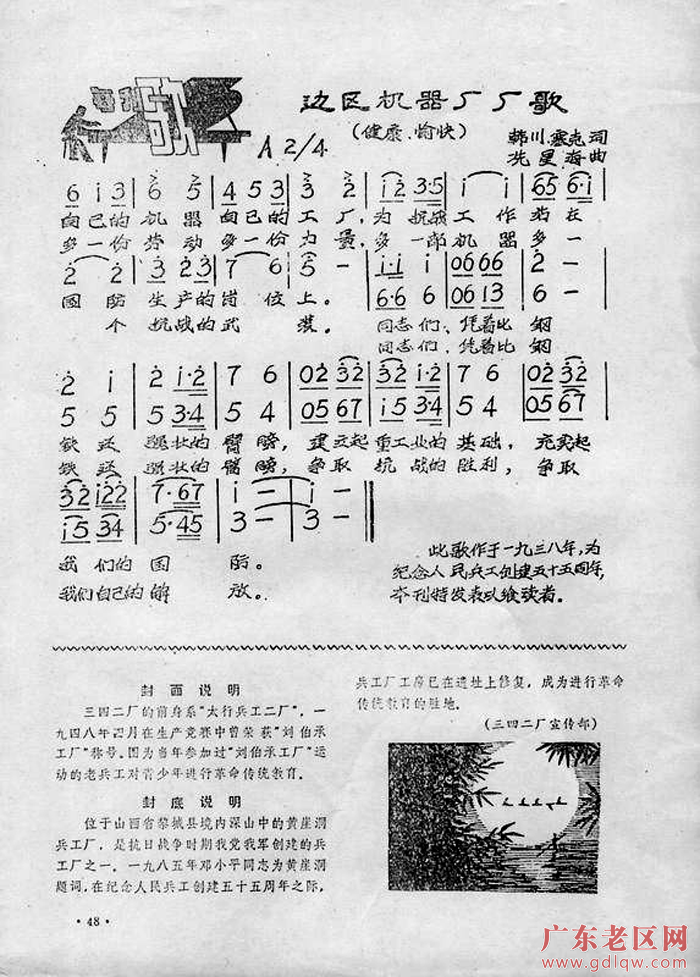 每月歌
边区机器厂厂歌
(健康、愉快)
A 2/4
韩川、塞克词
冼星海曲
6 i 3 | 6 5 | 4 5 3 | 3 2 | i 2 3·5 | i i | 65 6·i |
自己的机器自己的工厂,为抗战工作站在
多一份劳动多一份力量,多一部机器多一
2 2 | 3 2 3 | 7 6 | 5 - | i·i i | 06 66 | 2 - |
6·6 6 | 06 13 | 6 - |
国防生产的岗位上。同志们、凭着比钢
个抗战的武装。同志们、凭着比钢
2 i | 2 i·2 | 7 6 | 02 32 | 32 i·2 | 7 6 | 02 32 |
5 5 | 5 3·4 | 5 4 | 05 67 | i5 3·4 | 5 4 | 05 67 |
铁还强壮的臂膀,建立起重工业的基础,充实起
铁还强壮的臂膀,争取抗战的胜利,争取
32 i22 | 7·67 | i - | i - ‖
i5 34 | 5·45 | 3 - | 3 - ‖
我们的国防。
我们自己的解放。
此歌作于一九三八年,为
纪念人民兵工创建五十五周年,
本刊特发表以飨读者。
封面说明
三四二厂的前身系“太行兵工二厂”,一
九四八年四月在生产竞赛中曾荣获“刘伯承
工厂”称号。图为当年参加过“刘伯承工厂”运
动的老兵工对青少年进行革命传统教育。
封底说明
位于山西省黎城县境内深山中的黄崖洞
兵工厂,是抗日战争时期我党我军创建的兵
工厂之一。一九八五年邓小平同志为黄崖洞
题词,在纪念人民兵工创建五十五周年之际,
兵工厂工房已在遗址上修复,成为进行革命
传统教育的胜地。
(三四二厂宣传部)
·48·
广东老区网
www.gdlqw.com